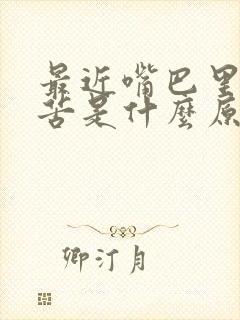 最近嘴巴里
苦是什麼原
卿汀月